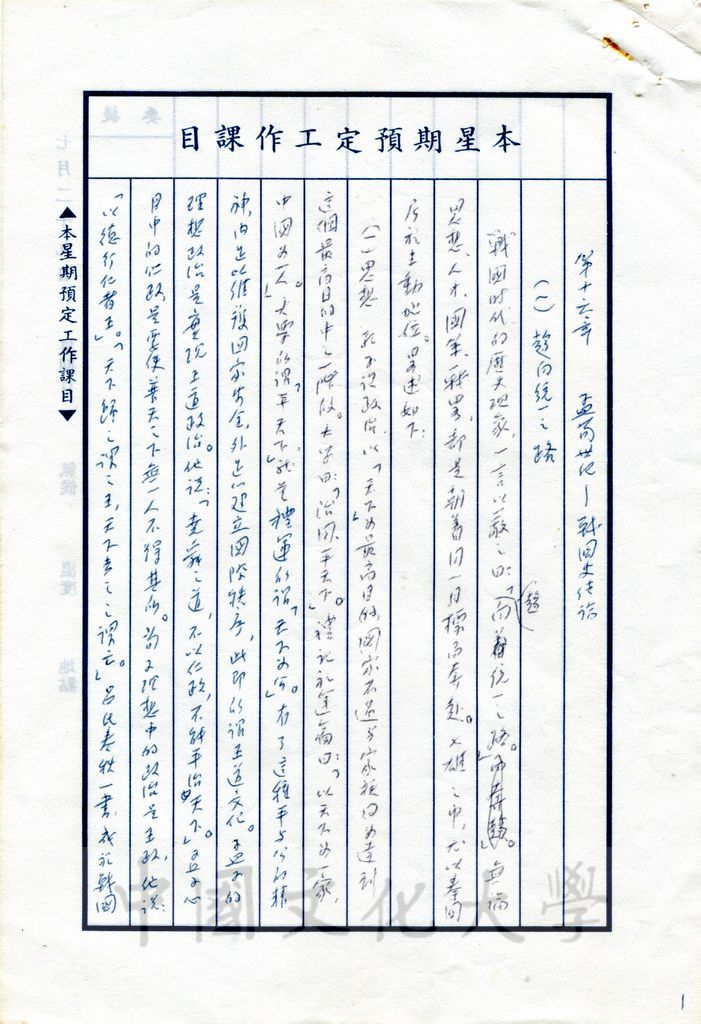 本星期預定工作課目
第十六章　孟荀世紀—戰國史結論
(一) 趨向統一之路
戰國時代的歷史現象，一言以蔽之曰：「向著統一之路」。無論
趨
思想、人才、國策、戰略，都是朝着同一目標而奔赴。七雄之中，尤以秦國
居於主動地位。略述如下：
(一)思想　孔子說政治，以「天下」為最高目的，國家不過與家族同為達到
這個最高目的中之一階段。大學曰：「治國、平天下」。禮記禮運篇曰：「以天下為一家，
中國為一人」。大學所謂「平天下」，就是禮運所謂「天下為公」。有了這種平與公的精
神，內足以維護國家安全，外足以建立國際秩序，此即所謂王道文化。孟子的
理想政治是實現王道政治。他說：「堯舜之道，不以仁政，不能平治天下」。孟子心
目中的仁政是要使普天之下無一人不得其所。荀子理想中的政治是王政，他說：
「以德行仁者王」。「天下歸之之謂王，天下去之之謂亡。」呂氏春秋一書，成於戰國
▲本星期預定工作課目▼
氣候　溫度　地點
七月二
中國文化大學
1